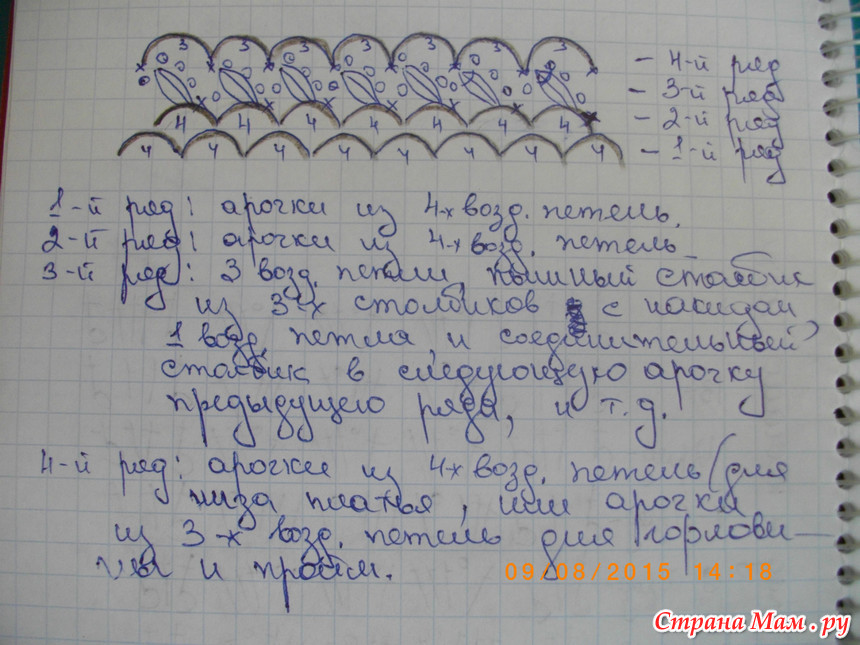 3 3 3 3 3 3 3 - 4-й ряд
- 3-й ряд
4 4 4 4 4 4 4 - 2-й ряд
4 4 4 4 4 4 4 4 - 1-й ряд
1-й ряд: арочки из 4-х возд. петель.
2-й ряд: арочки из 4-х возд. петель
3-й ряд: 3 возд. петли, пышный столбик
из 3-х столбиков с накидом
1 возд. петля и соединительный
столбик в следующую арочку
предыдущего ряда, и т.д.
4-й ряд: арочки из 4-х возд. петель (для
низа платья, или арочки
из 3-х возд. петель для горлови-
ны и пройм.
09/08/2015 14:18
Страна Мам.ру